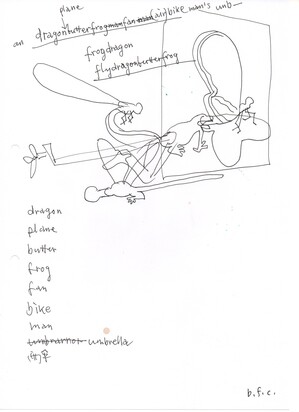 plane
an dragonbutterfrogmanfanman(air)bike man's unb-
frogdragon
flydragonbutterfrog
dragon
plane
butter
frog
fan
bike
man
umbrella
b.f.c.